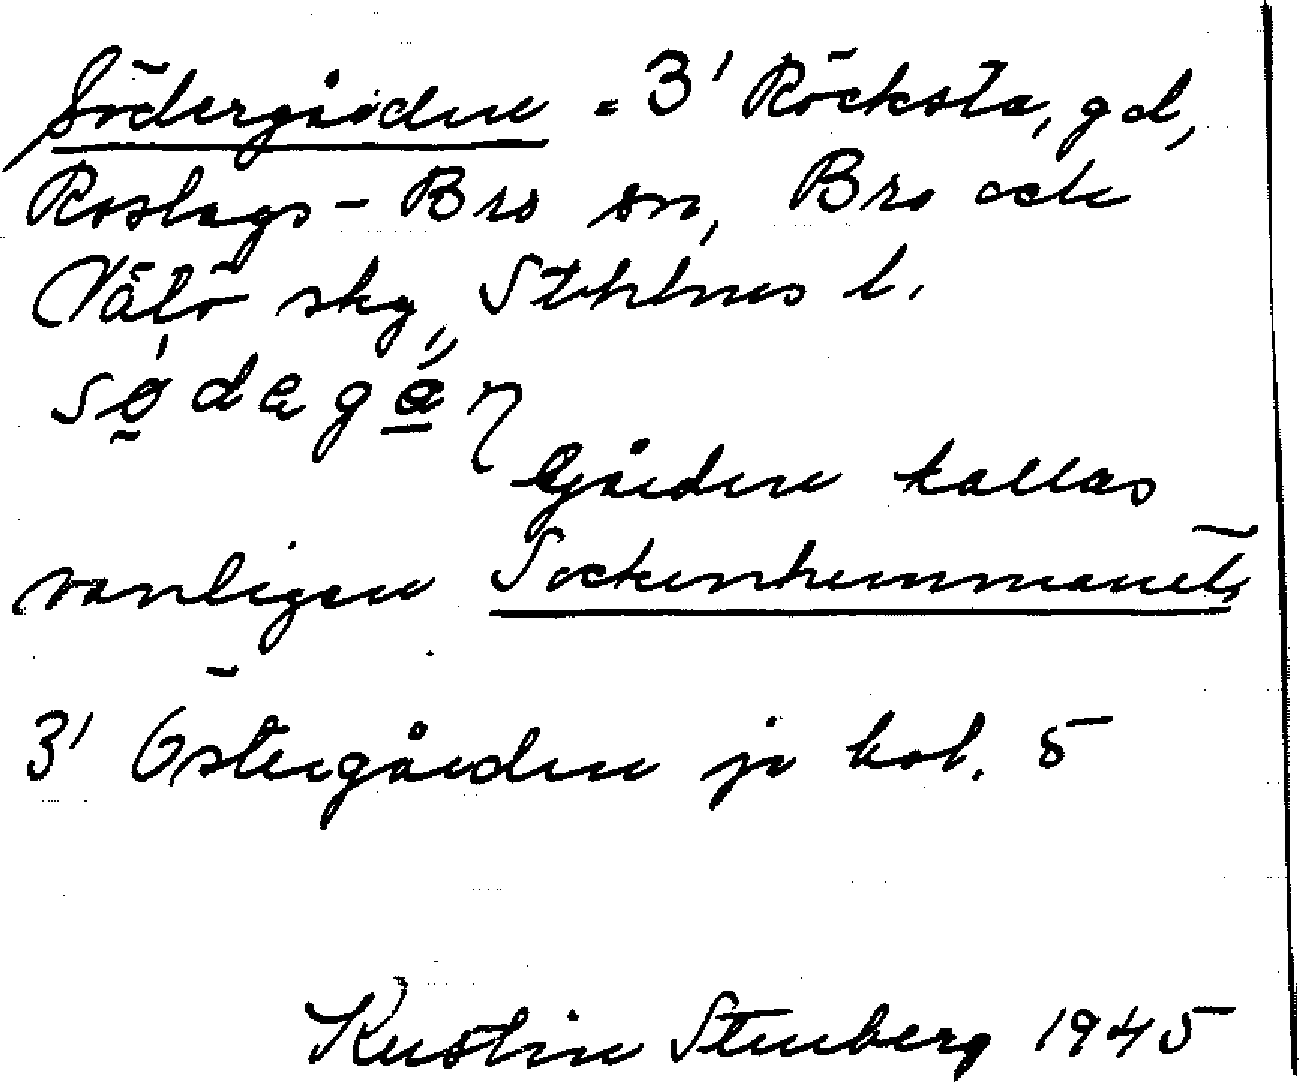 Södergården = 3' Röcksta, gd,
Roslags-Bro sn, Bro och
Vätö skg, Sthlms l.
södegå
Gården kallas
vanligen Sockenhemmanet,
3' Östergården jr kol. 5
Kerstin Stenberg 1945